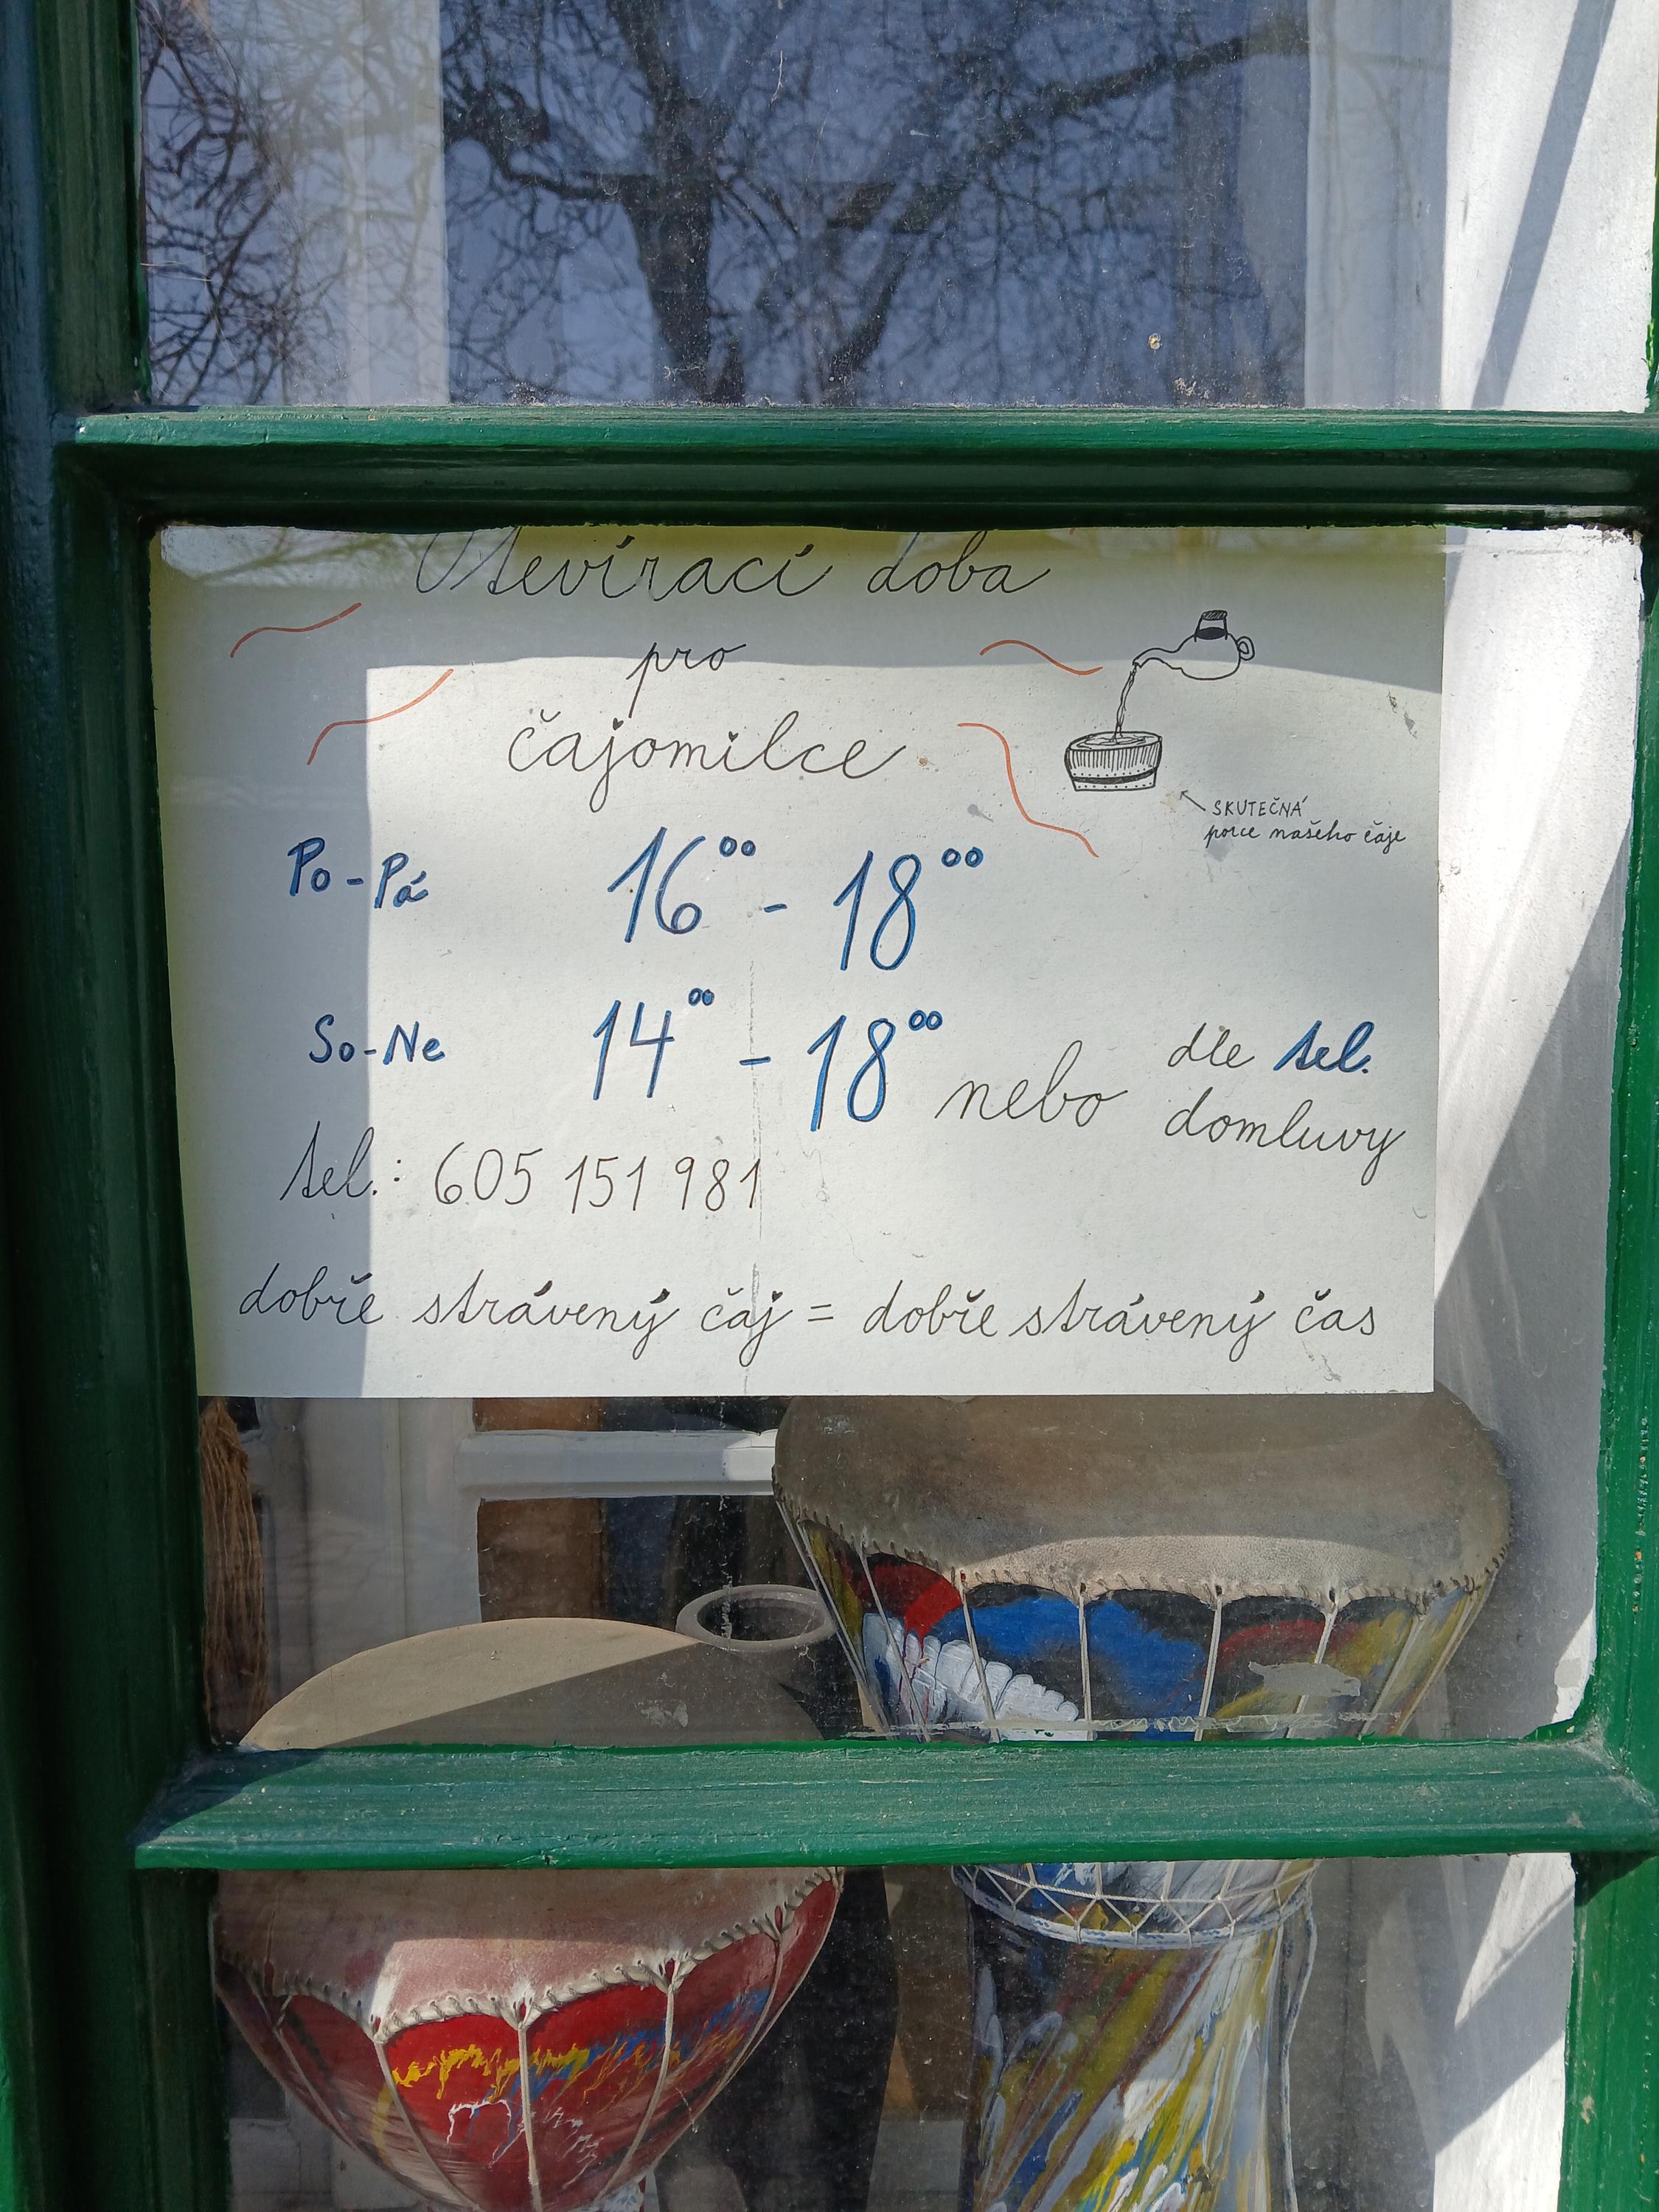 Otevírací doba
pro
čajomilce
SKUTEČNÁ
porce našeho čaje
Po-Pá 16⁰⁰ - 18⁰⁰
So-Ne 14⁰⁰ - 18⁰⁰ nebo dle tel.
domluvy
tel.: 605 151 981
dobře strávený čaj = dobře strávený čas